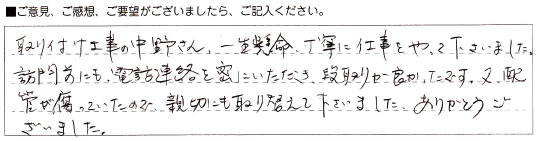 ■ご意見、ご感想、ご要望がございましたら、ご記入ください。
取り付け工事の中野さん、一生懸命、丁寧に仕事をやって下さいました。
訪問前にも、電話連絡を密にいただき、段取りが良かったです。又、配
管が腐っていたので、親切にも取り替えて下さいました。ありがとうご
ざいました。